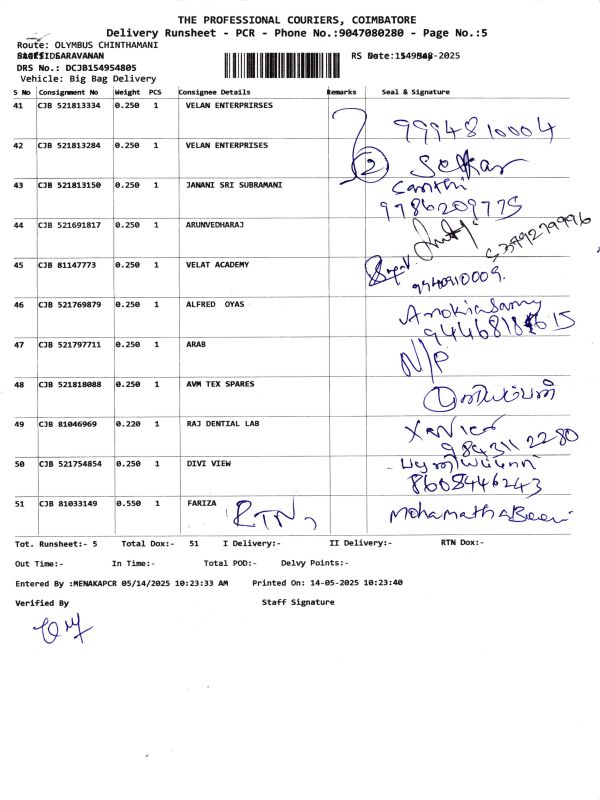 THE PROFESSIONAL COURIERS, COIMBATORE
Delivery Runsheet - PCR - Phone No.:9047080280 - Page No.:5
Route: OLYMBUS CHINTHAMANI
SARAVANAN RS Date: -2025
DRS No.: DCJB154954805
Vehicle: Big Bag Delivery
S No Consignment No Weight PCS Consignee Details Remarks Seal & Signature
41 CJB 521813334 0.250 1 VELAN ENTERPRIRSES 9994810004
42 CJB 521813284 0.250 1 VELAN ENTERPRISES 2
43 CJB 521813150 0.250 1 JANANI SRI SUBRAMANI
9786209775
44 CJB 521691817 0.250 1 ARUNVEDHARAJ
45 CJB 81147773 0.250 1 VELAT ACADEMY
46 CJB 521769879 0.250 1 ALFRED OYAS
47 CJB 521797711 0.250 1 ARAB N/P
48 CJB 521818088 0.250 1 AVM TEX SPARES
49 CJB 81046969 0.220 1 RAJ DENTIAL LAB Xavier
9843112280
50 CJB 521754854 0.250 1 DIVI VIEW
8608446243
51 CJB 81033149 0.550 1 FARIZA RTN
Tot. Runsheet:- 5 Total Dox:- 51 I Delivery:- II Delivery:- RTN Dox:-
Out Time:- In Time:- Total POD:- Delvy Points:-
Entered By :MENAKAPCR 05/14/2025 10:23:33 AM Printed On: 14-05-2025 10:23:40
Verified By Staff Signature